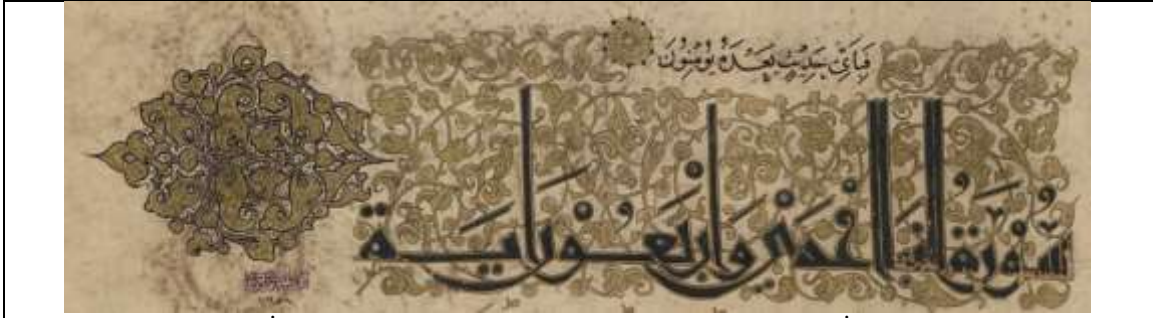 فَبِأَيِّ حَدِيثٍ بَعْدَهُ يُؤْمِنُونَ
سورة النبا احدى واربعون اية